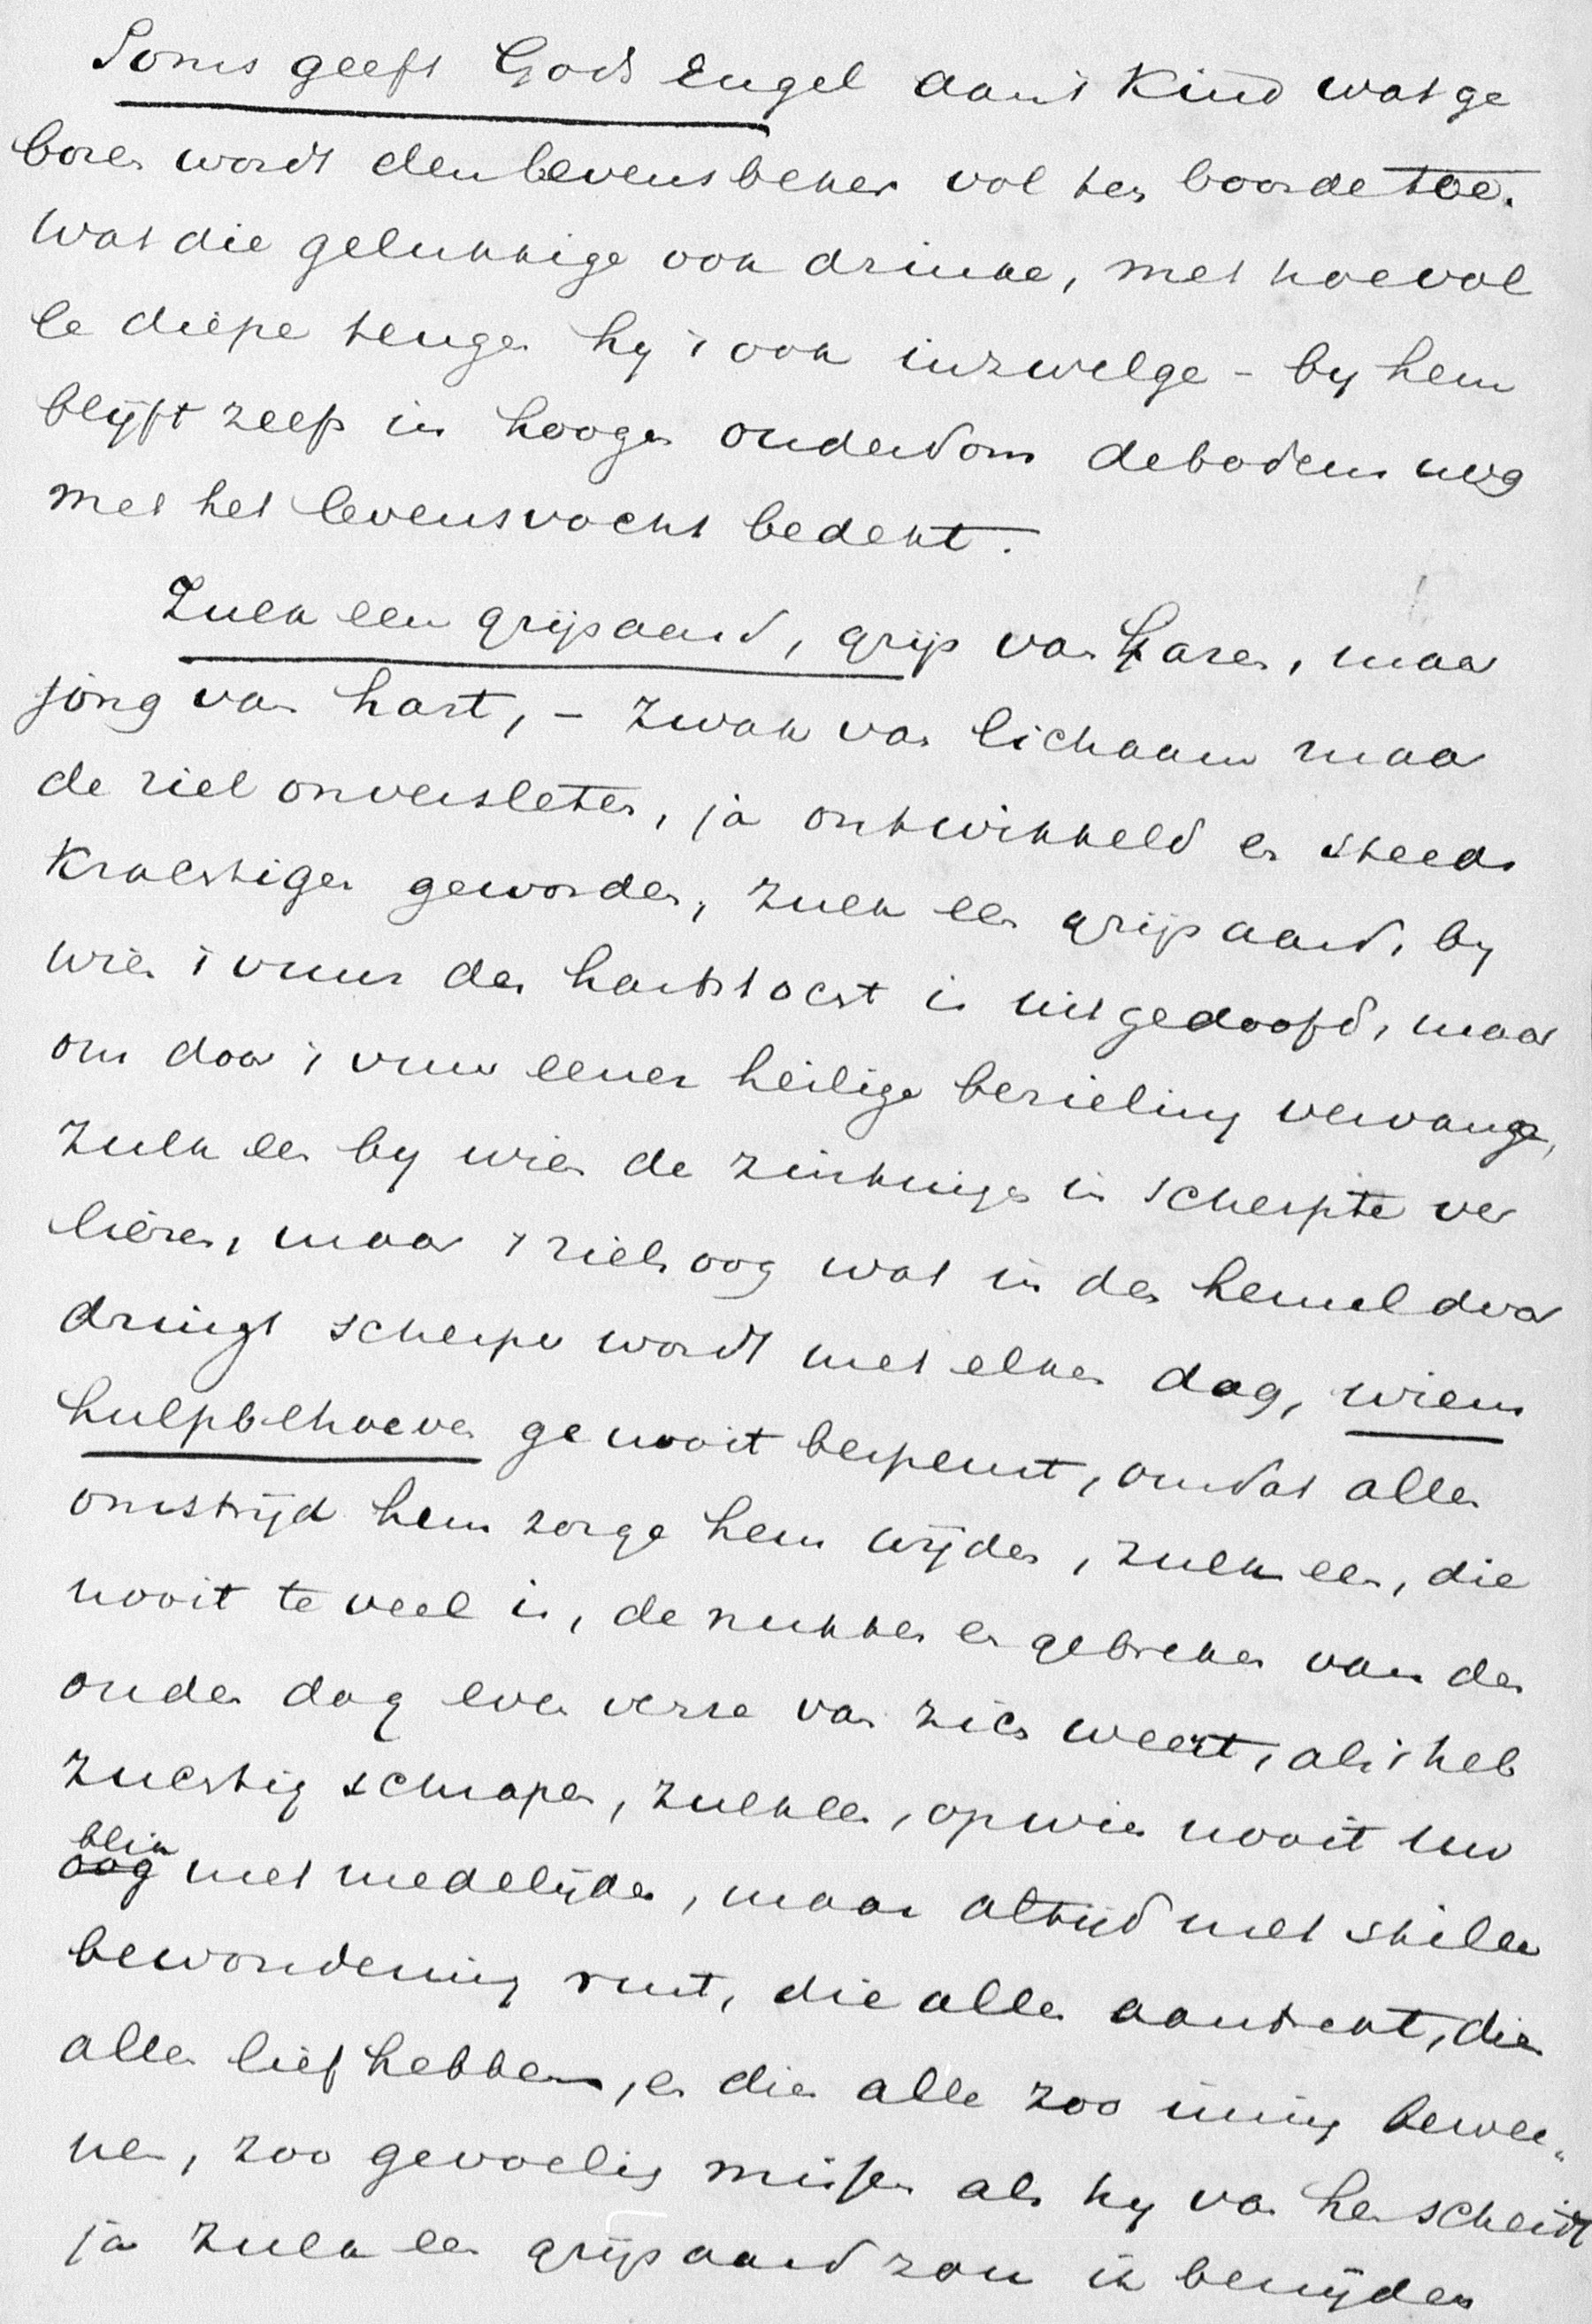 Soms geeft Gods Engel aan 't Kind wat ge
boren wordt den levensbeker vol ten boorde toe.
Wat die gelukkige ook drinke, met hoe vol
le diepe teugen hy 't ook inzwelge - by hem
blijft zelfs in hoogen ouderdom de bodem nog
met het levensvocht bedekt.
Zulk een grijsaard, grijs van haren, maar
jong van hart, - zwak van lichaam maar
de ziel onversleten, ja ontwikkeld en steeds
Krachtiger geworden, zulk een grijsaard, by
wien 't vuur der hartstocht is uitgedoofd, maar
om door 't vuur eener heilige bezieling vervangen,
zulk een by wien de zintuigen in scherpte ver
lieren, maar 't zielsoog wat in den hemel door
dringt scherper wordt met elken dag, wiens
hulpbehoeven ge nooit bespeurt, omdat allen
omstrijd hem zorge hem wijden, zulk een, die
nooit te veel is, de nukken en gebreken van den
ouden dag even verre van zich weert, als 't heb
zuchtig schrapen, zulk een, op wien nooit uw
blik
oog met medelijden, maar altijd met stille
bewondering rust, die allen aantrekt, dien
allen lief hebben, en dien alle zoo innig bewee„
nen, zoo gevoelig missen als hy van hen scheidt
ja zulk een grijsaard zou ik benijden